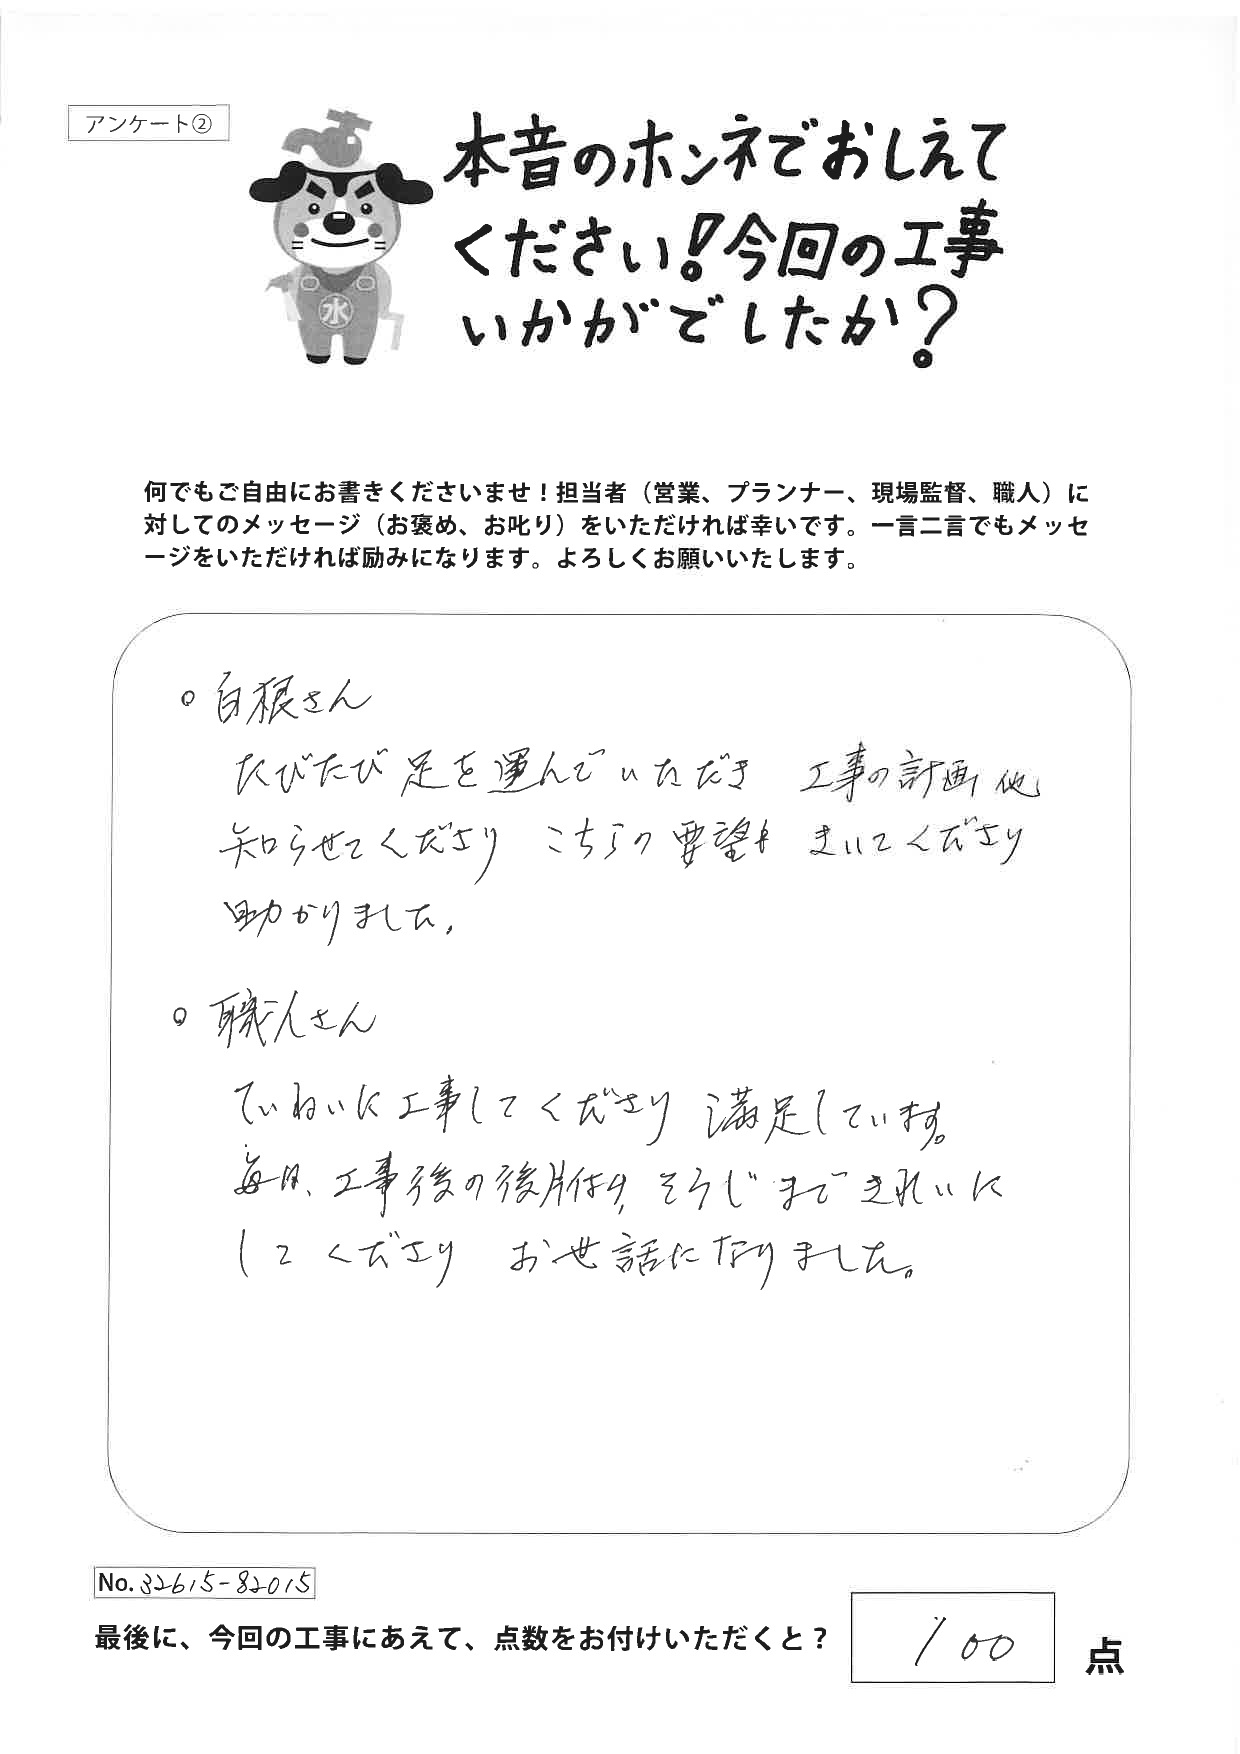 アンケート②
本音のホンネでおしえて
ください!今回の工事
いかがでしたか?
水
何でもご自由にお書きくださいませ！担当者（営業、プランナー、現場監督、職人）に
対してのメッセージ（お褒め、お叱り）をいただければ幸いです。一言二言でもメッセ
ージをいただければ励みになります。よろしくお願いいたします。
○ 白根さん
たびたび足を運んでいただき 工事の計画他
知らせてくださり こちらの要望も きいてくださり
助かりました.
○ 職人さん
ていねいに工事してくださり 満足しています。
毎日、工事後の後片付け, そうじまできれいに
してくださり お世話になりました。
No. 32615-82015
最後に、今回の工事にあえて、点数をお付けいただくと？
100 点